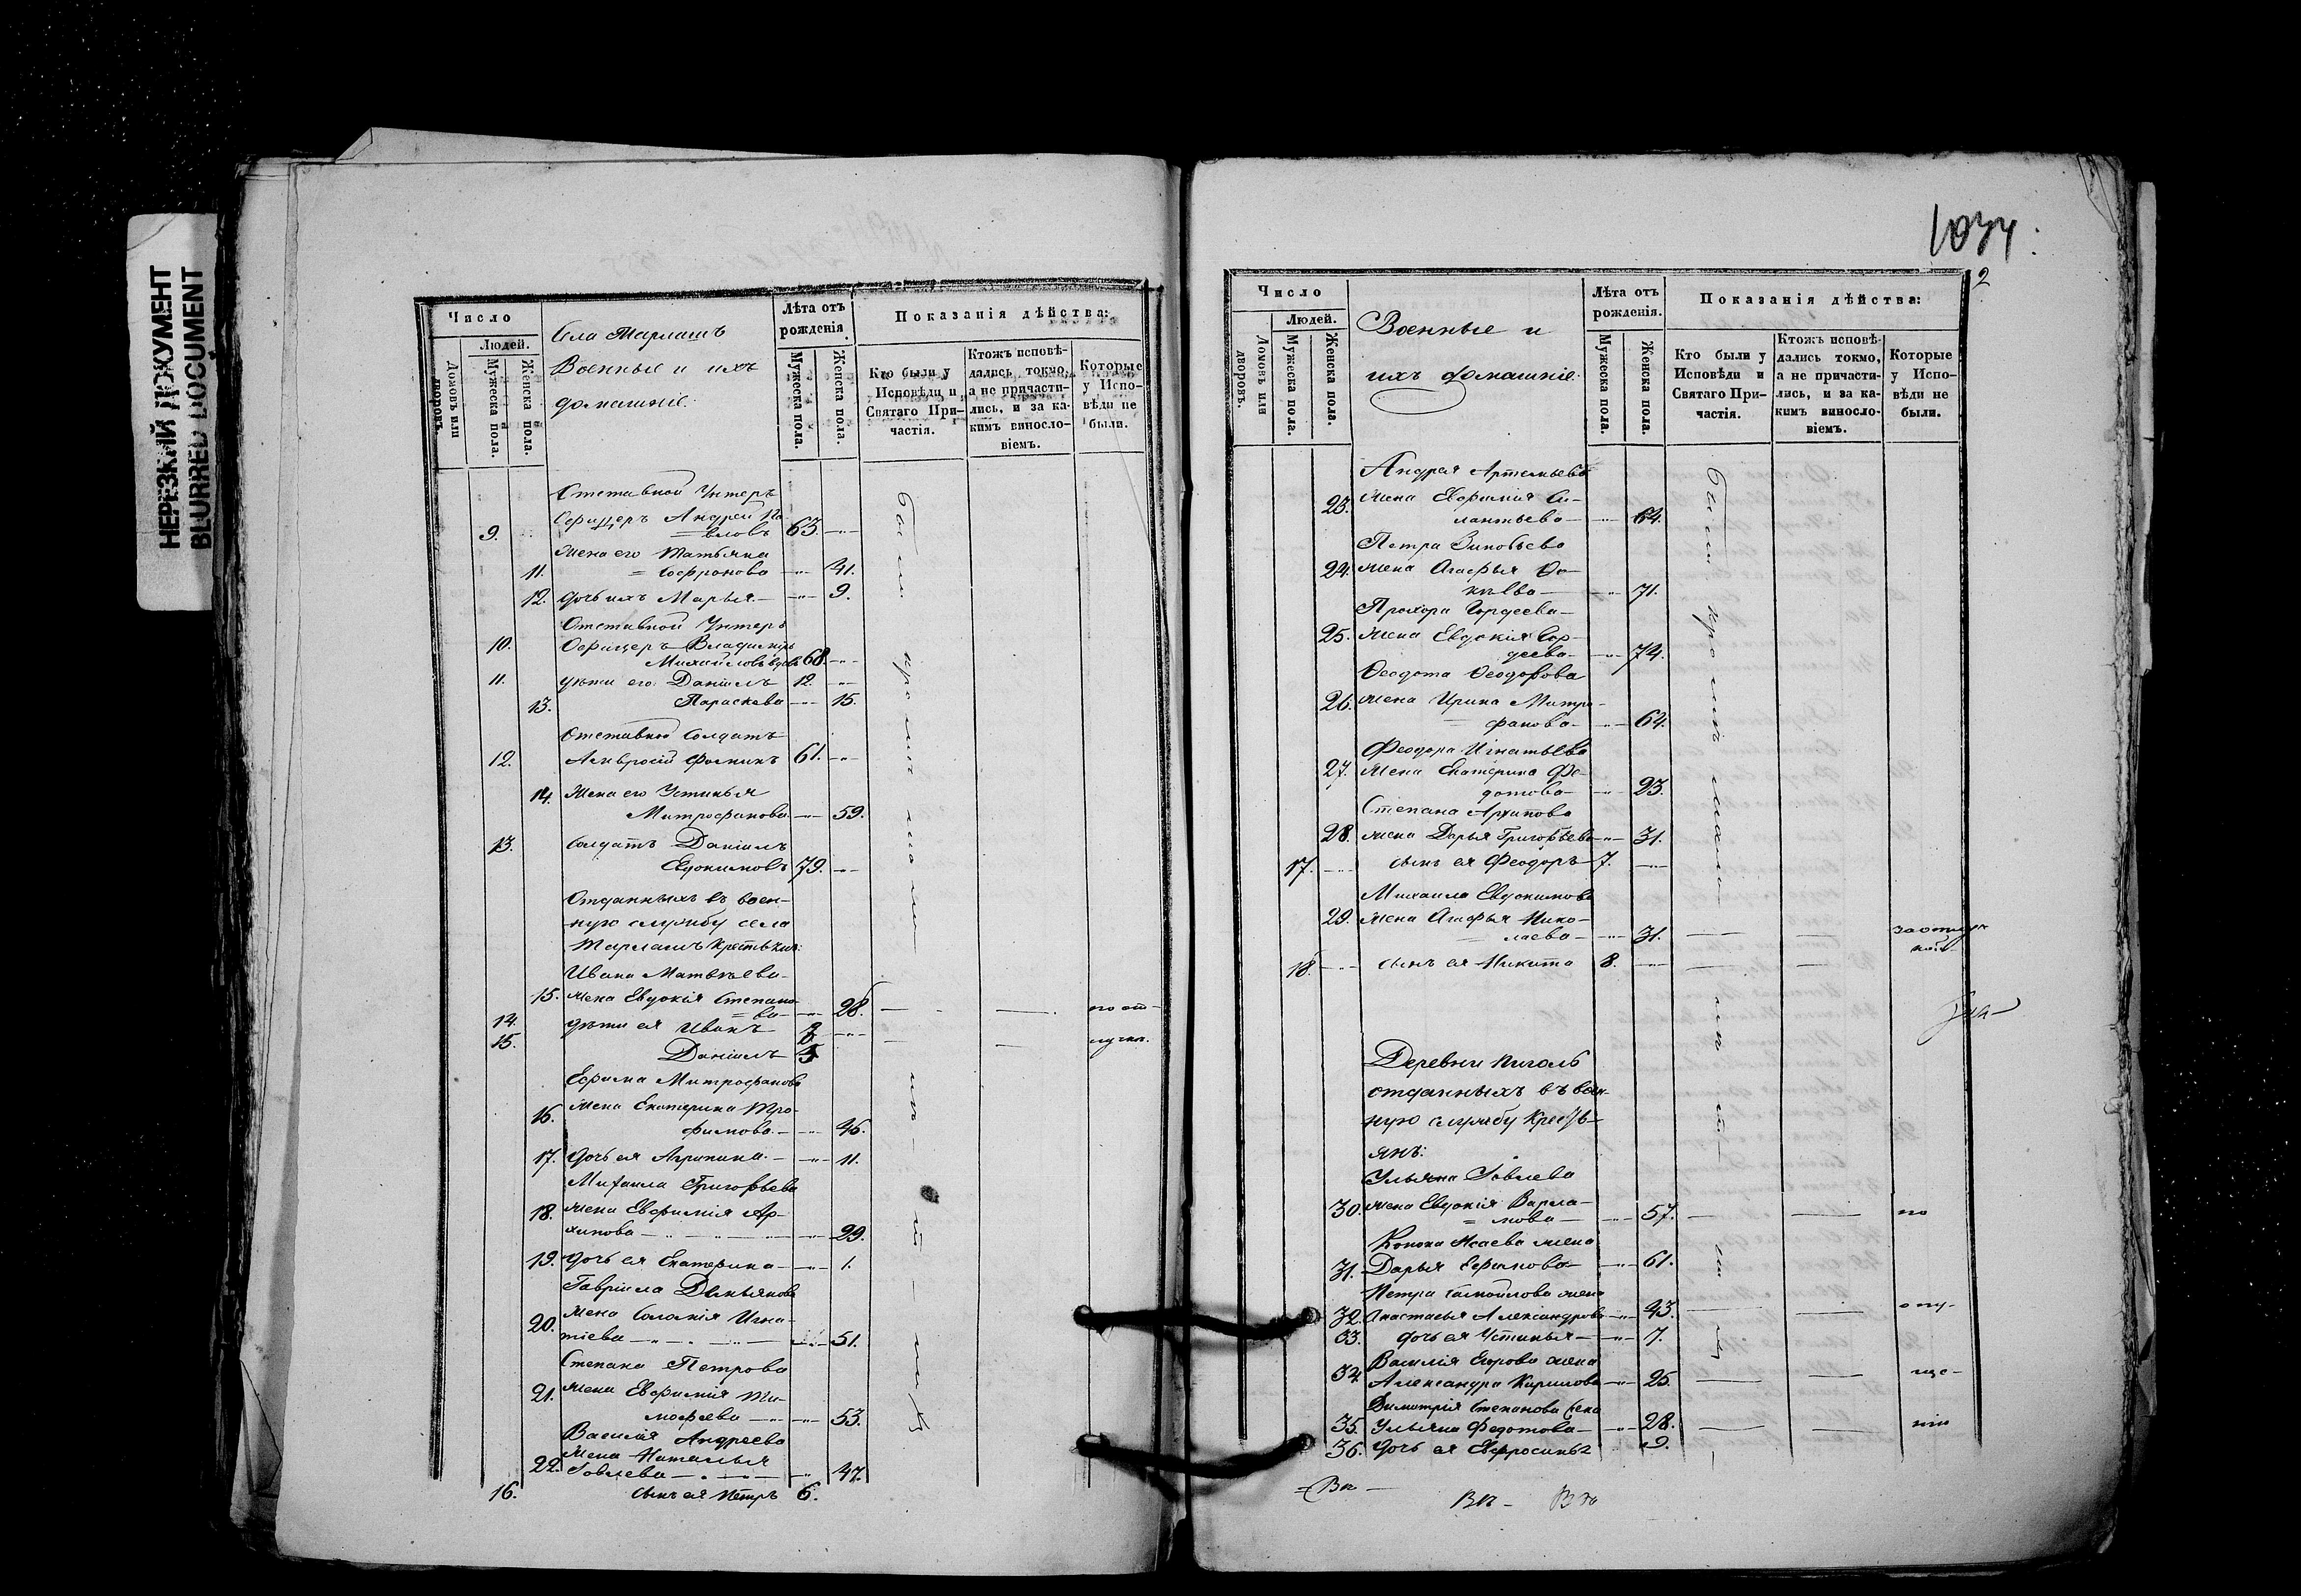 НЕРЕЗКИЙ ДОКУМЕНТ
BLURRED DOCUMENT
Число
Людей.
Домовъ или дворовъ.
Мужеска пола.
Женска пола.
Села Тарлашъ
Военные и ихъ
домашніе.
Лѣта отъ
рожденія.
Мужеска пола.
Женска пола.
Показанія дѣйства:
Кто были у
Исповѣди и
Святаго При-
частія.
Ктожъ исповѣ-
дались токмо,
а не причасти-
лись, и за ка-
кимъ винословіемъ.
Которые
у Испо-
вѣди не
были.
Отставной Унтеръ
9. Офицеръ Андрей Па-
=вловъ 63.
Жена его Татьяна
11. = Софронова 41.
12. дочь ихъ Марья 9.
Отставной Унтеръ
10. Офицеръ Владиміръ
Михайловъ вдовъ 68.
11. дѣти его: Даніилъ 12.
13. Параскева 15.
Отставной Солдатъ
12. Амвросій Фоминъ 61.
14. Жена его Устинья
Митрофанова 59.
13. Солдатъ Даніилъ
Евдокимовъ 79.
Отданныхъ въ воен-
ную службу села
Тарлашъ крестьянъ:
Ивана Матвѣева
15. Жена Евдокія Степано-
=ва 28. по от-
14. дѣти ея Иванъ
15. Даніилъ 5 лучкѣ.
Ефима Митрофанова
16. Жена Екатерина Тро-
фимова 46.
17. дочь ея Агрипина 11.
Михаила Григорьева
18. Жена Евфимія Ар-
хипова 29.
19. дочь ея Екатерина 1.
Гавріила Демьянова
20. Жена Соломія Игна-
тіева 51.
Степана Петрова
21. Жена Евфимія Ти-
мофеева 53.
Василія Андреева
Жена Наталья
22. Іовлева 47.
16. сынъ ея Петръ 6.
2
Число
Людей.
Домовъ или дворовъ.
Мужеска пола.
Женска пола.
Военные и
ихъ домашніе.
Лѣта отъ
рожденія.
Мужеска пола.
Женска пола.
Показанія дѣйства:
Кто были у
Исповѣди и
Святаго При-
частія.
Ктожъ исповѣ-
дались токмо,
а не причасти-
лись, и за ка-
кимъ винословіемъ.
Которые
у Испо-
вѣди не
были.
Андрея Артемьева
23. Жена Евфимія Си-
лантьева 64.
Петра Зиновьева
24. Жена Агафья
71.
Прохора Гордеева
25. Жена Евдокія
деева 74.
Ѳеодота Ѳеодорова
26. Жена Ирина Митро-
фанова 64.
Феодора Игнатьева
27. Жена Екатерина Фе-
дотова 23.
Степана Архипова
28. Жена Дарья Григорьева 31.
17. сынъ ея Феодоръ 7.
Михаила Евдокимова
29. Жена Агафья Нико-
лаева 31.
18. сынъ ея Никита 8.
Деревни
отданныхъ въ воен-
ную службу крестья-
янъ:
Ульяна Іовлева
30. Жена Евдокія Варла-
=мова 57. по
Конона Исаева жена
31. Дарья Ефимова 61.
Петра Самойлова жена
32. Анастасья Александрова 43. опу-
33. дочь ея Устинья 7.
Василія Егорова жена
34. Александра Кирилова 25. ще-
Димитрія Степанова жена
35. Ульяна Федотова 28. нію
36. дочь ея Евфросинья 9.